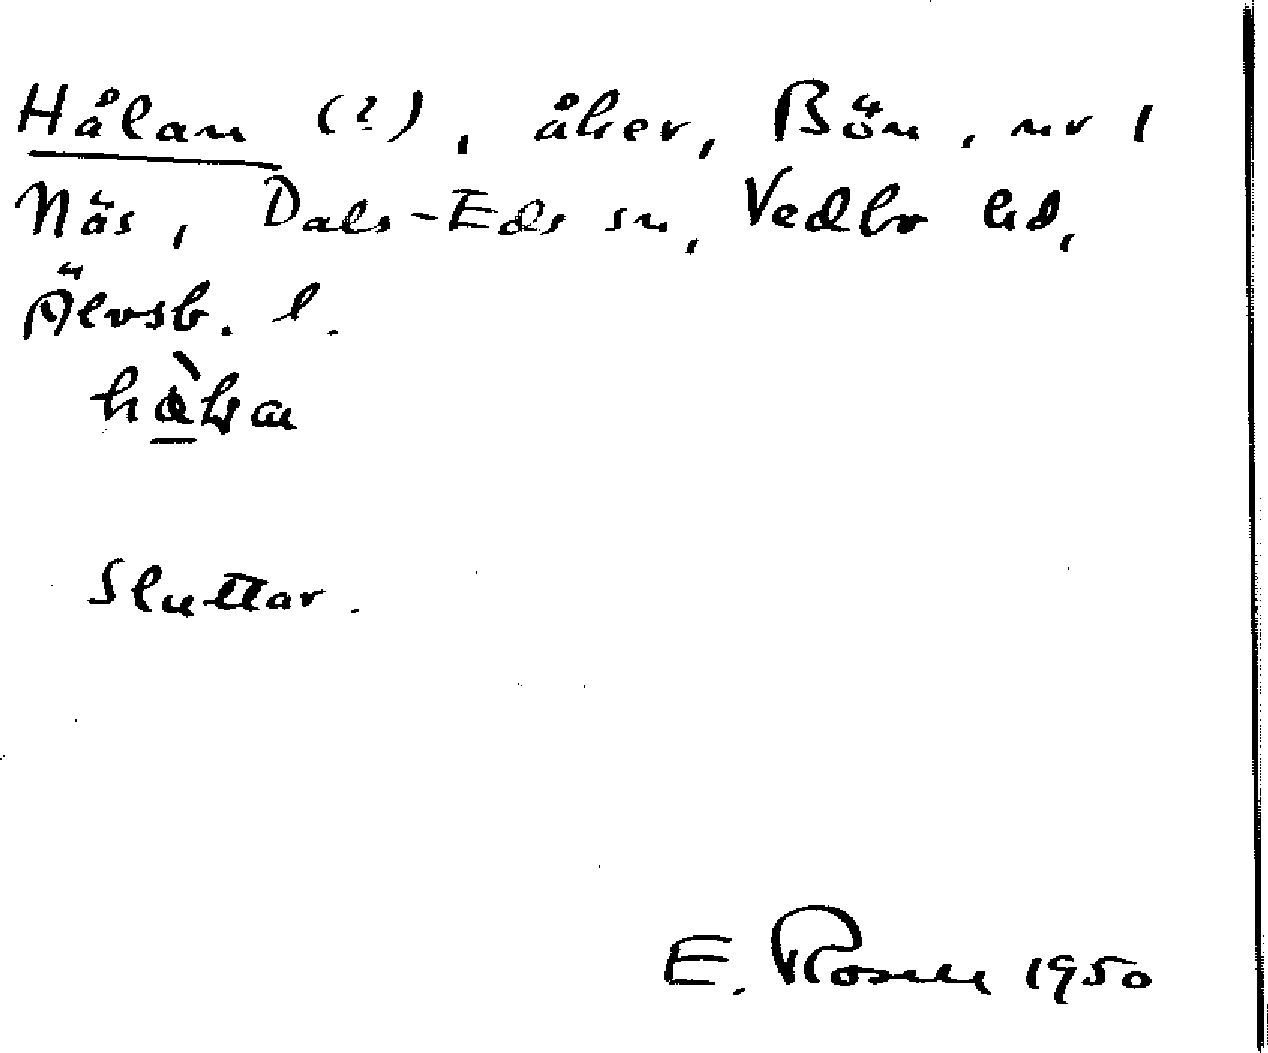 Hålan (?), åker, Bön, nr 1
Näs, Dals-Eds sn, Vedbo hd,
Älvsb. l.
Sluttar.
E. Rosell 1950